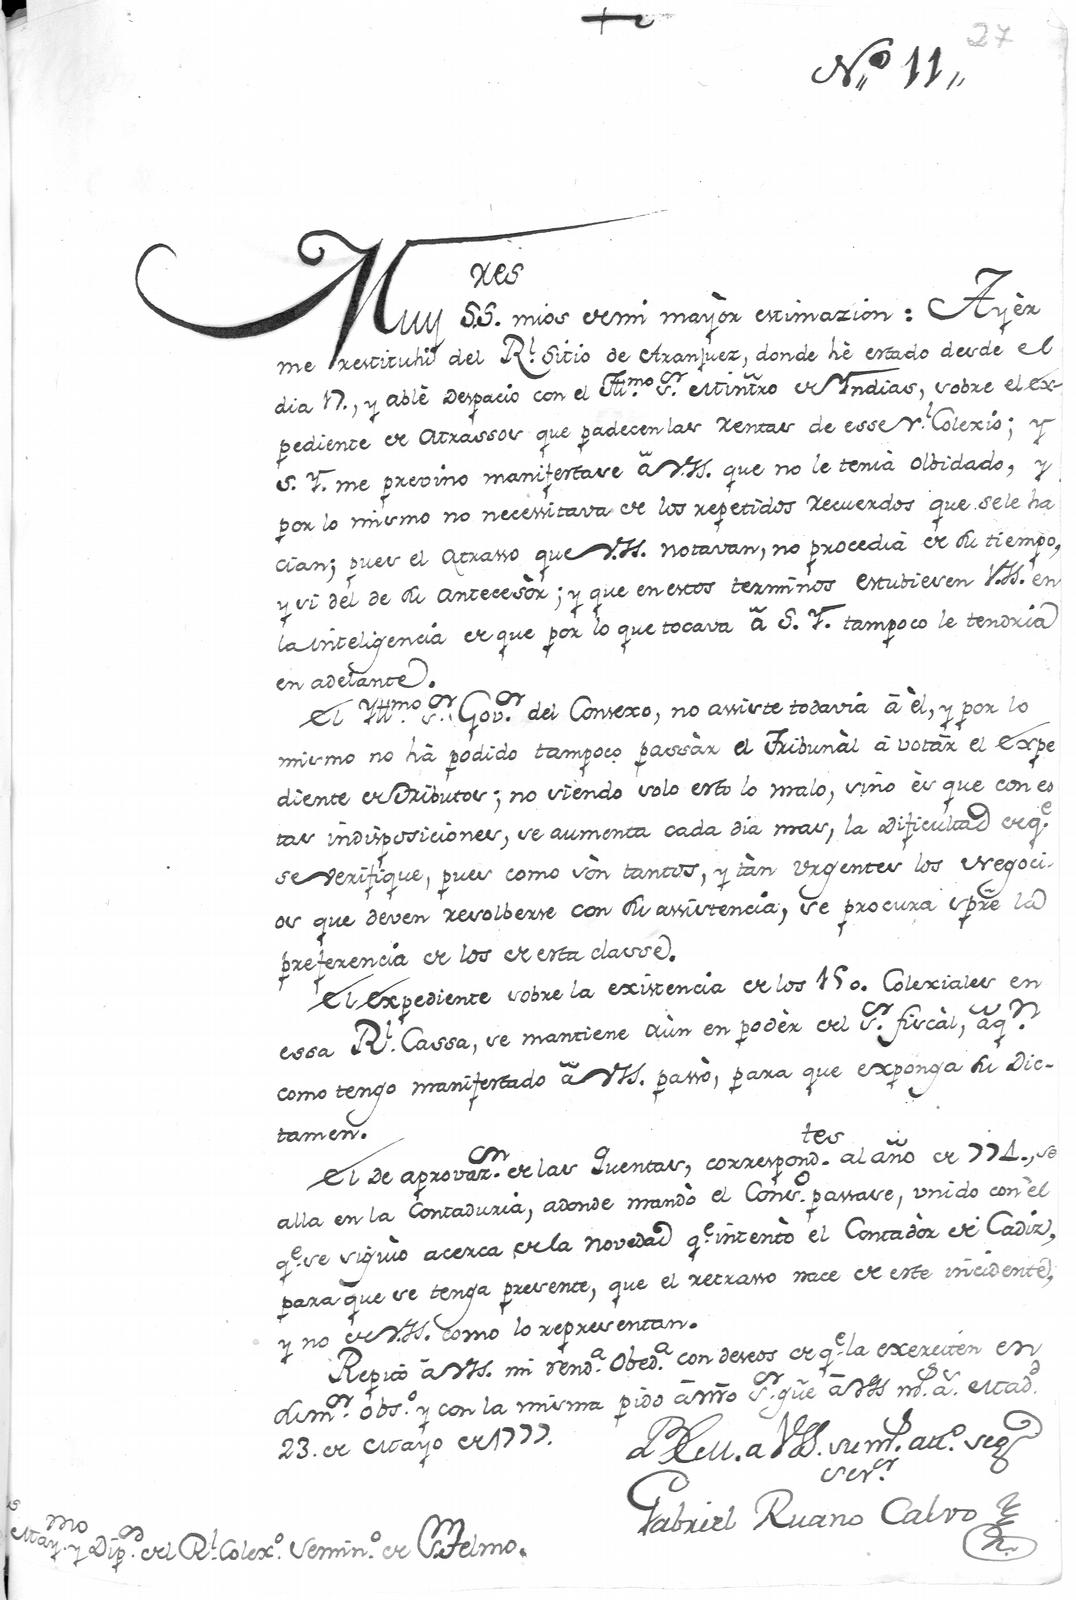 27
Nº 11,,
res
Muy SS. mios de mi mayòr estimazion: Ayèr
me restituhi del Rl. Sitio de Aranjuez, donde hè estado desde el
dia 17., y ablè Despacio con el Yllmo. Sr. Mintro de Yndias, sobre el ex-
pediente de Atrassos que padecen las rentas de esse Rl. Colexio; y
S. Y. me previno manifestase â VSS. que no le tenia Olbidado, y
por lo mismo no necessitava de los repetidos recuerdos que se le ha
cian; pues el Atrasso que VSS. notavan, no procedia de su tiempo,
y si del de su Antecesòr; y que en estos terminos estubiesen VSS. en
la inteligencia de que por lo que tocava â S. Y. tampoco le tendria
en adelante.
El Yllmo. Sr. Govr. del Consexo, no assiste todavia â èl, y por lo
mismo no hà podido tampoco passàr el Tribunàl â votàr el expe
diente de Tributos; no siendo solo esto lo malo, sino ès que con es
tas indisposiciones, se aumenta cada dia mas, la dificultad de qe.
se verifique, pues como sòn tantos, y tàn Urgentes los Negoci-
os que deven resolberse con su assistencia, se procura spre la
preferencia de los de esta classe.
El Expediente sobre la existencia de los 150. Colexiales en
essa Rl. Cassa, se mantiene aùn en podèr del Sr. fiscàl, â qn.
como tengo manifestado â VSS. passò, para que exponga su Dic-
tamen.
El de aprovazn. de las Quentas, correspondtes. al año de 774., se
alla en la Contaduria, adonde mandò el Conso. passase, unido con el
qe. se siguio acerca de la Novedad qe. intentò el Contadòr de Cadiz,
para que se tenga presente, que el retrasso nace de este incidente,
y no de VSS. como lo representan.
Repito â VSS. mi renda. Obeda. con deseos de qe. la exerciten en
su mr. obso. y con la misma pido â Nro Sr. gũe â VSS ms. as. Madd.
23. de Mayo de 1777.
BLM. a VSS. su ms. atto. segº
servr.
Gabriel Ruano Calvo
Maymo. y Dipn. del Rl. Colexo. Semino. de Sn. Telmo.